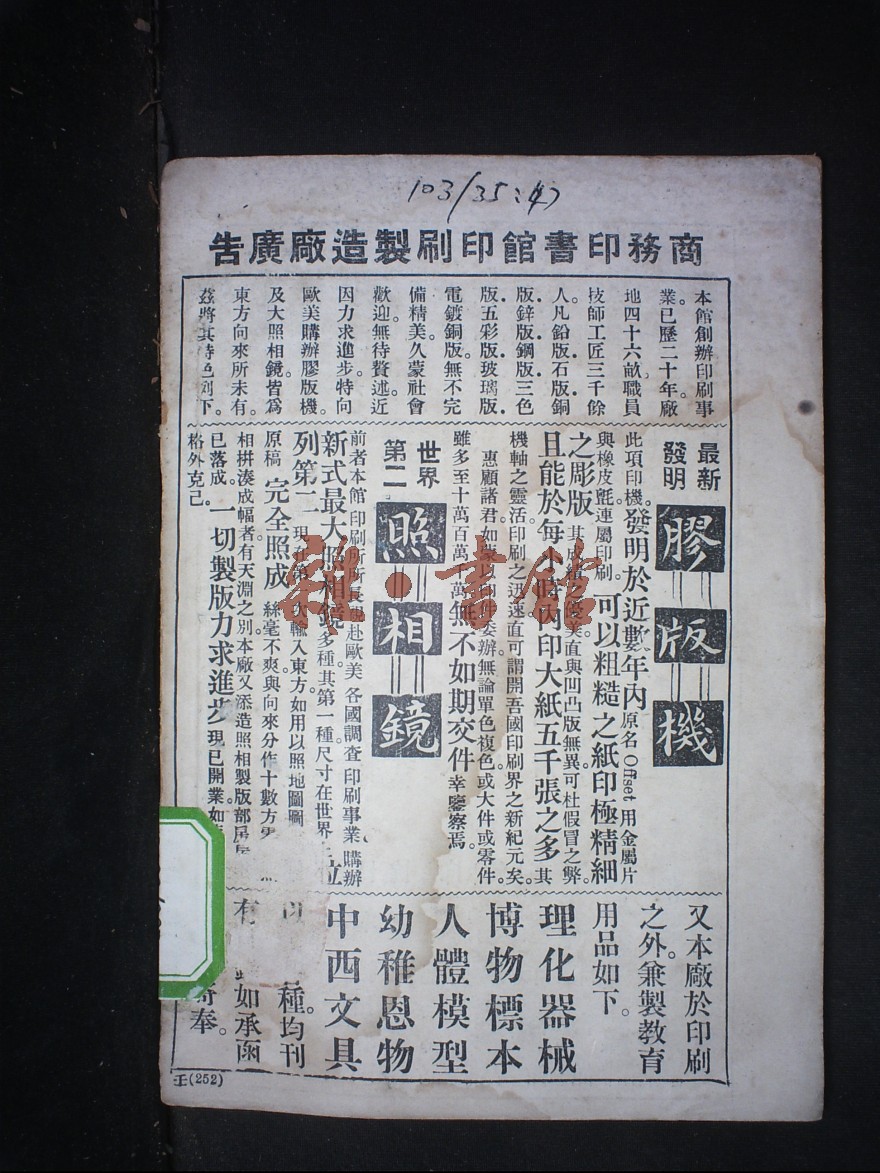 103/35:47
商務印書館印刷製造廠廣告
本館創辦印刷事
業。已歷二十年。廠
地四十六畝。職員
技師工匠三千餘
人。凡鉛版石版銅
版鋅版鋼版三色
版五彩版玻璃版
電鍍銅版。無不完
備精美。久蒙社會
歡迎。無待贅述。近
因力求進步。特向
歐美購辦膠版機。
及大照相鏡。皆為
東方向來所未有。
茲將其特色列下。
最新
發明
膠版機
此項印機。發明於近數年內原名Offset用金屬片
與橡皮氈連屬印刷。可以粗糙之紙印極精細
之彫版其成績之優美直與凹凸版無異可杜假冒之弊
且能於每小時內印大紙五千張之多其
機軸之靈活印刷之迅速直可謂開吾國印刷界之新紀元矣。
惠顧諸君如委辦無論單色複色。或大件或零件。
雖多至十萬百萬千萬無不如期交件幸鑒察焉。
世界
第二
照相鏡
前者本館印刷所所長親赴歐美各國調查印刷事業購辦
新式最大照相鏡多種。其第一種尺寸在世界上位
列第二現在第次輸入東方如用以照地圖圖
原稿完全照成絲毫不爽與向來分作十數方
相拼湊成幅者有天淵之別本廠又添造照相製版部房屋
已落成。一切製版力求進步現已開業如
格外克己。
又本廠於印刷
之外。兼製教育
用品如下。
理化器械
博物標本
人體模型
幼稚恩物
中西文具
以種。均刊
有如承函
寄奉。
王(252)
雜·書館